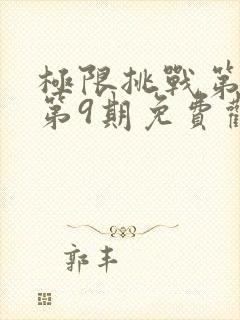 極限挑戰第
第9期免費觀
郭丰